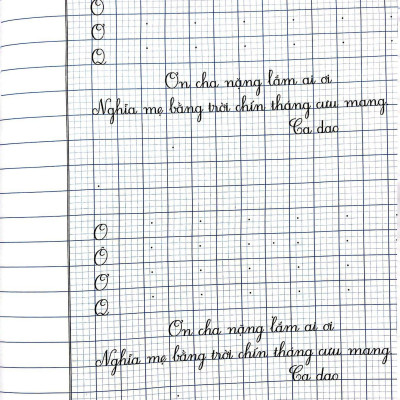 O
Ơ
Q
Ơn cha nặng lắm ai ơi
Nghĩa mẹ bằng trời chín tháng cưu mang.
Ca dao
O
Ô
Ơ
Q
Ơn cha nặng lắm ai ơi
Nghĩa mẹ bằng trời chín tháng cưu mang
Ca dao